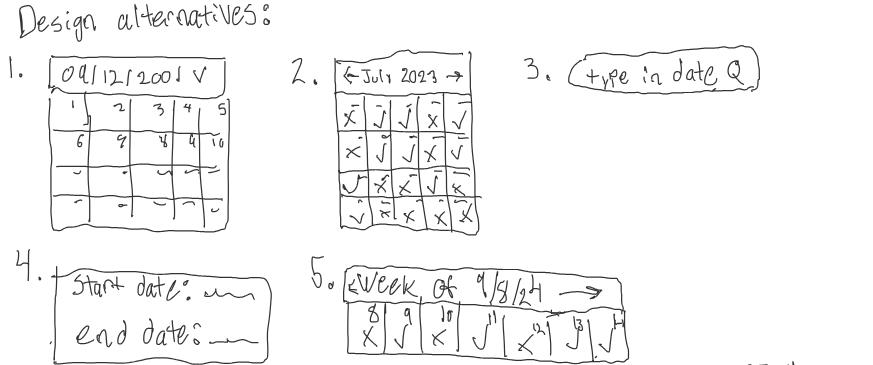 Design alternatives:
1.
09/12/2001 ✓
1 2 3 4 5
6 9 8 9 10
2.
← July 2023 →
x ✓ ✓ x ✓
x ✓ ✓ x ✓
✓ x x ✓ x
✓ x x x x
3.
type in date
4.
Start date:
end date:
5.
< Week of 9/8/24 →
8 9 10 11 12 13
x ✓ x ✓ x ✓ ✓